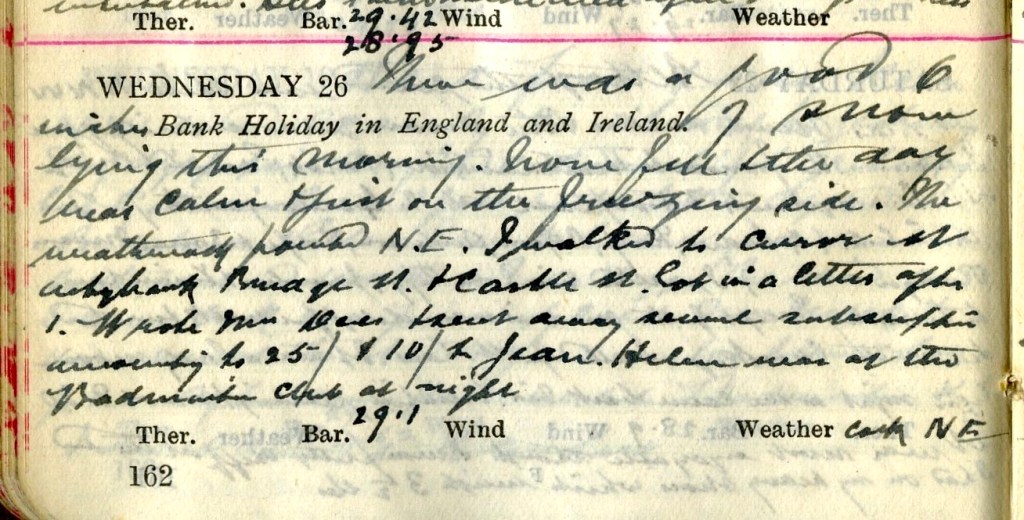 Ther. Bar. 29.42 Wind Weather
28.95
WEDNESDAY 26 There was a good 6
inches Bank Holiday in England and Ireland. of snow
lying this morning. None fell & the day
was calm & just on the freezing side. The
weathercock pointed N.E. I walked to Cursor St
Bridge St. & Castle St. Got in a letter after
1. Wrote Mrs Dees & sent away several subscriptions
amounting to 25/ & 10/ to Jean. Helen was at the
Badminton Club at night
Ther. Bar. 29.1 Wind Weather cock N E
162